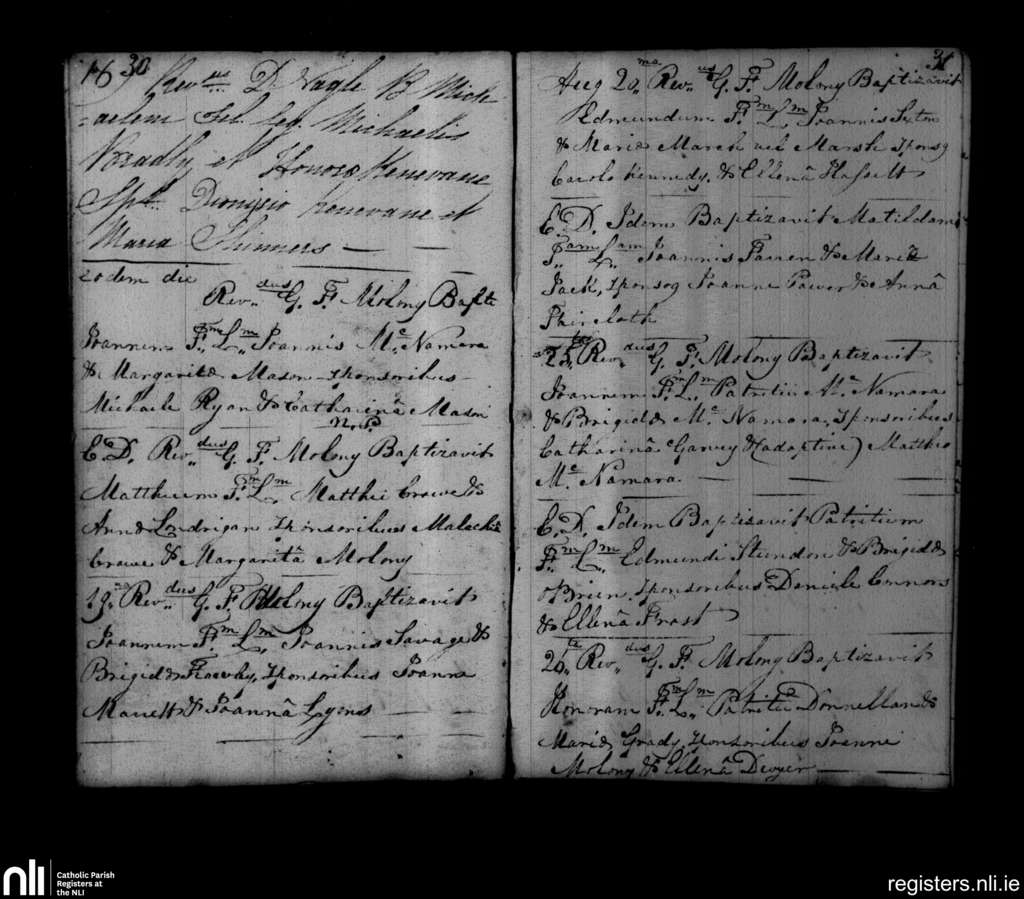 16 30
Rev.us D. Nagle B. Mich-
=aelem Fil. Leg. Michaelis
et Honoræ Kenevane
Spt. Dionisio Kenevane et
Maria Skinners
eodem die
Rev.dus G. F. Molony Bapte
Joannem F.m L.m Joannis Mc. Namara
& Margaritæ Mason Sponsoribus
Michaele Ryan & Catharinâ Mason
N.P.
E. D. Rev.dus G. F. Molony Baptizavit
Mattheum F.m L.m Matthei Crowe &
Annæ Londrigan Sponsoribus Malachia
Crowe & Margaritâ Molony
19. Rev.dus G. F. Molony Baptizavit
Joannem F.m L.m Joannis Savage &
Brigidæ Sponsoribus Joanne
& Joannâ Lyons
31
Aug 20.mo Rev.dus G. F. Molony Baptizavit
Edmundum F.m L.m Joannis Sexton
& Mariæ March vel Marsh Sponsg
Carolo Kennedy & Ellenâ Hassett
E. D. Idem Baptizavit Matildam
F.am L.am Joannis Farren & Mariæ
Jack, Sponsog Joanne Power & Annâ
25.to Rev.dus G. F. Molony Baptizavit
Joannem F.m L.m Patritii Mc. Namara
& Brigidæ Mc. Namara, Sponsoribus
Catharinâ Garvey & (adoptive) Mattheo
Mc. Namara
E. D. Idem Baptizavit Patritium
F.m L.m Edmundi Stundon & Brigidæ
O Brien, Sponsoribus Daniele Connors
& Ellenâ Frost
26.to Rev.dus G. F. Molony Baptizavit
Honoram F.m L.m Patritii Donnellan &
Mariæ Grady Sponsoribus Joanne
Molony & Ellenâ Dwyer
nli
Catholic Parish
Registers at
the NLI
registers.nli.ie